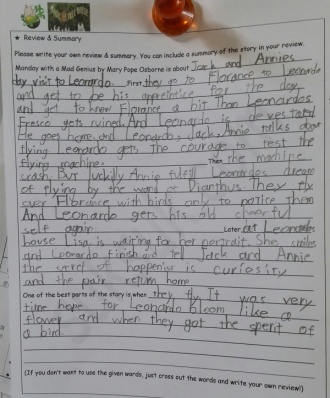 ★ Review & Summary
Please write your own review & summary. You can include a summary of the story in your review.
Monday with a Mad Genius by Mary Pope Osborne is about Jack and Annies
day visit to Leonardo. First they go to Florance to Leonardo
and get to be his apprentice for the day
and get to know Florance a bit Than Leonardos
Fresco gets ruined. And Leonardo is devestated
He goes home and Leonardo, Jack, Annie talks about
flying Leonardo gets the courage to test the
flying machine. Then, the machine
crash. But luckily Annie fulfill Leonardos dream
of flying by the wand of Dianthus. They fly
over Florance with birds only to notice them
And Leonardo gets his old cheerful
self again. Later, at Leonardos
house Lisa is waiting for her portrait. She smiles
and Leonardo finish and tell Jack and Annie
the secret of happenies is curiosity
and the pair return home
One of the best parts of the story is when they fly It was very
time hope for Leonardo bloom like a
flower and when they got the sperit of
a bird.
(If you don't want to use the given words, just cross out the words and write your own review!)